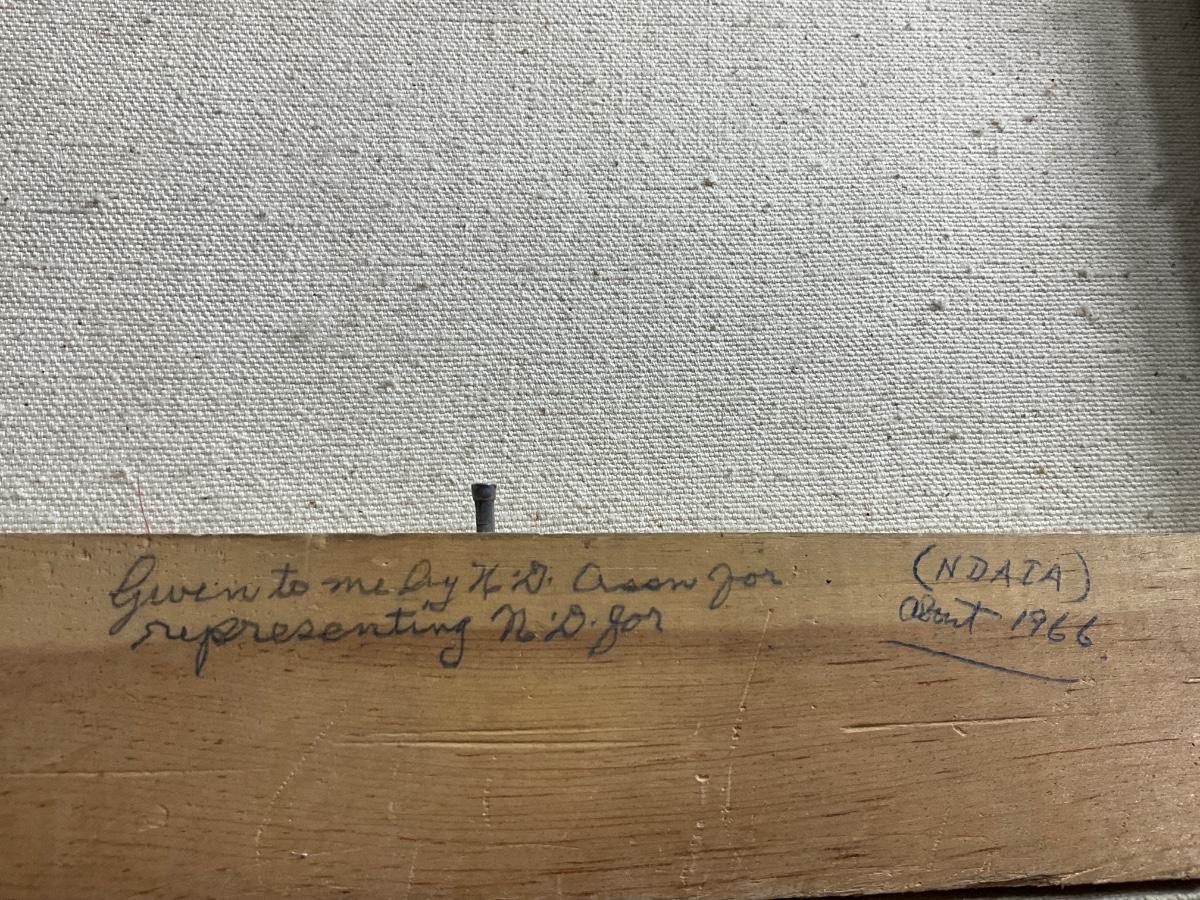 Given to me by N.D. Assn for
representing N.D. for
(NDATA)
about 1966.